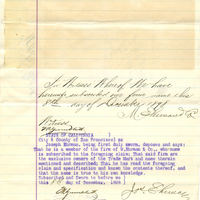 In Witness Whereof We have
hereunto subscribed our names this
8th day of December 1898
Witness
STATE OF CALIFORNIA
City & County of San Francisco) ss
Joseph Ehrman, being first duly sworn, deposes and says:
That he is a member of the firm of M.Ehrman & Co., who's name
is subscribed to the foregoing claim; That said firm are
the exclusive owners of the Trade Mark and name therein
mentioned and described; That he has read the foregoing
claim and specification and knows the contents thereof, and
that the same is true to his own knowledge.
Subscribed and Sworn to before me
this 8 day of December, 1898